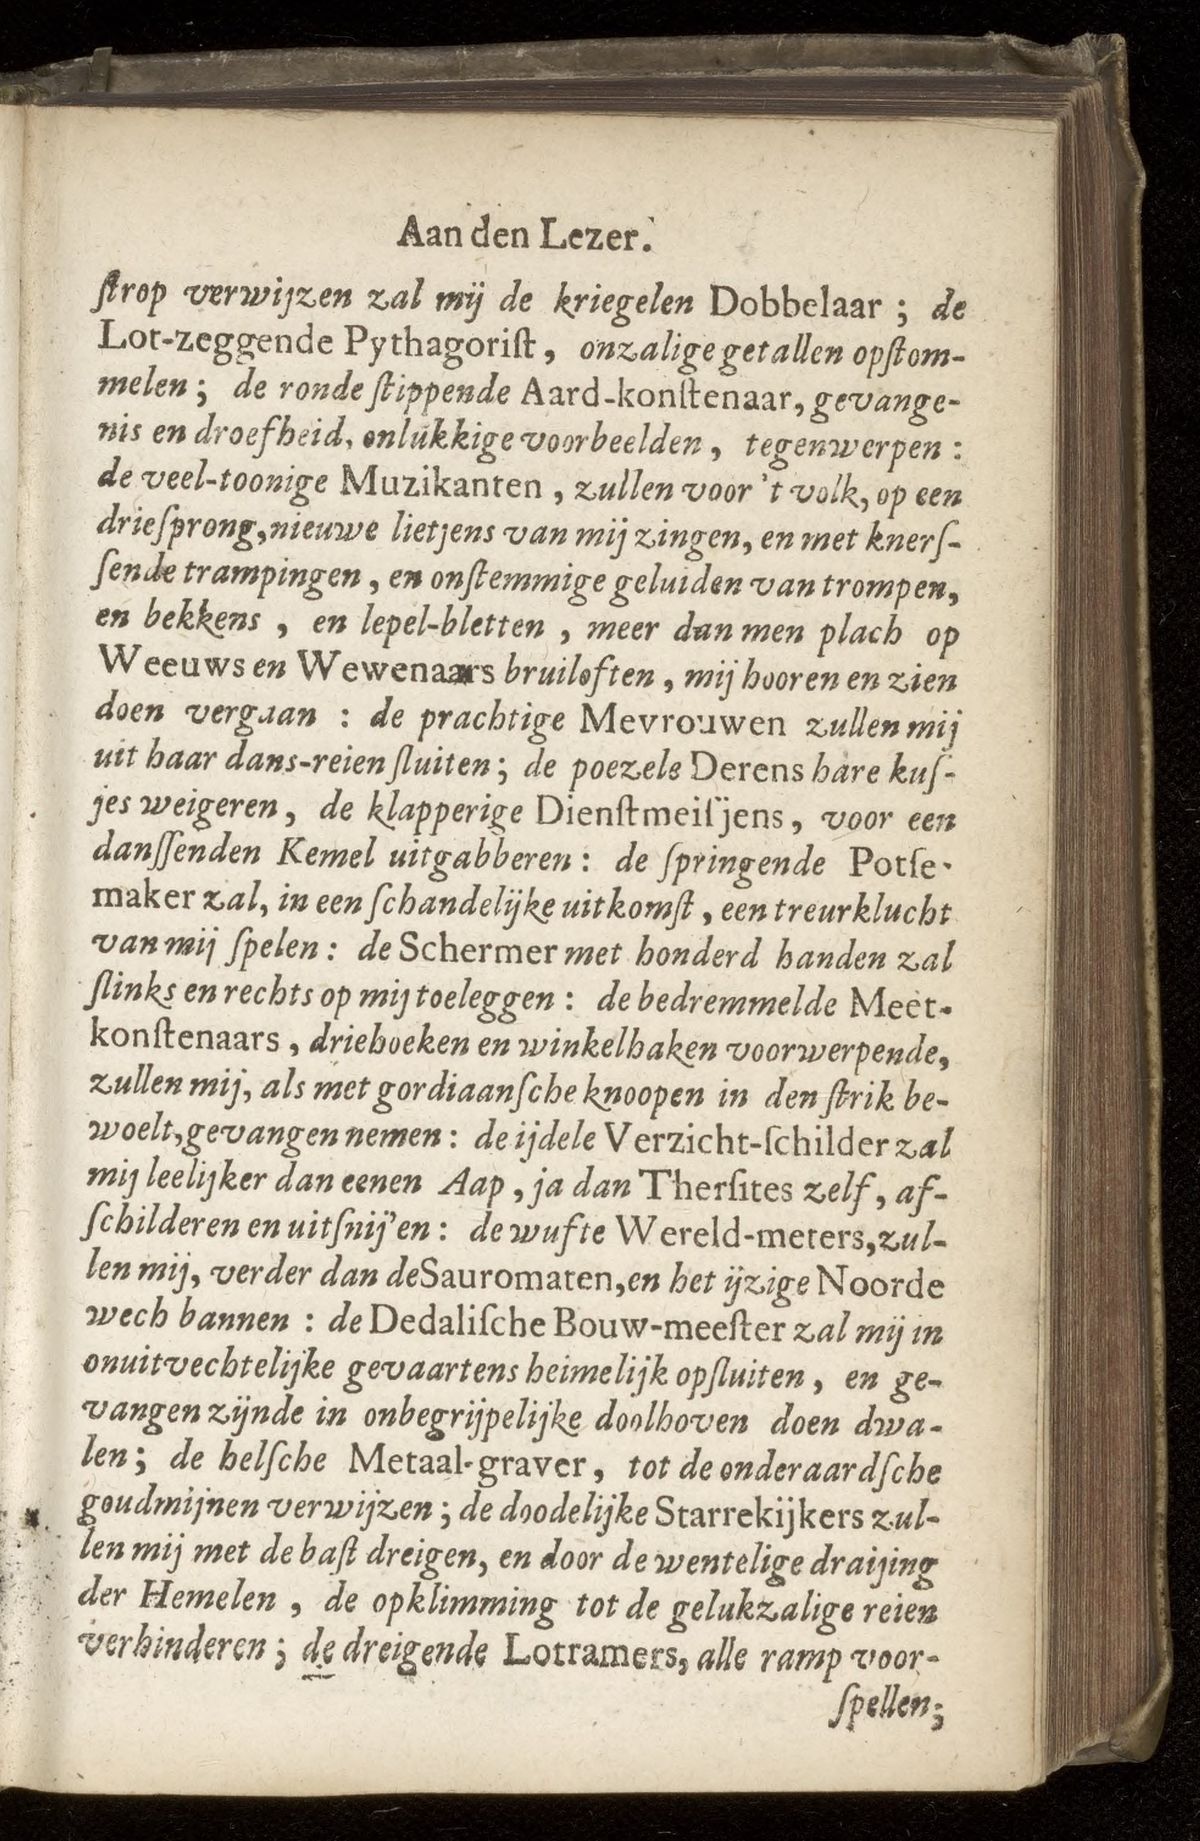 Aan den Lezer.
ſtrop verwijzen zal mij de kriegelen Dobbelaar ; de
Lot-zeggende Pythagoriſt, onzalige getallen opſtom-
melen ; de ronde ſtippende Aard-konſtenaar, gevange-
nis en droefheid, onlukkige voorbeelden, tegenwerpen :
de veel-toonige Muzikanten, zullen voor 't volk, op een
drieſprong, nieuwe lietjens van mij zingen, en met knerſ-
ſende trampingen, en onſtemmige geluiden van trompen,
en bekkens, en lepel-bletten, meer dan men plach op
Weeuws en Wewenaars bruiloften, mij hooren en zien
doen vergaan : de prachtige Mevrouwen zullen mij
uit haar dans-reien ſluiten ; de poezele Derens hare kuſ-
jes weigeren, de klapperige Dienſtmeiſjens, voor een
danſſenden Kemel uitgabberen : de ſpringende Potſe-
maker zal, in een ſchandelijke uitkomſt, een treurklucht
van mij ſpelen : de Schermer met honderd handen zal
ſlinks en rechts op mij toeleggen : de bedremmelde Meet-
konſtenaars, driehoeken en winkelhaken voorwerpende,
zullen mij, als met gordiaanſche knoopen in den ſtrik be-
woelt, gevangen nemen : de ijdele Verzicht-ſchilder zal
mij leelijker dan eenen Aap, ja dan Therſites zelf, af-
ſchilderen en uitſnij'en : de wufte Wereld-meters, zul-
len mij, verder dan de Sauromaten, en het ijzige Noorde
wech bannen : de Dedaliſche Bouw-meeſter zal mij in
onuitvechtelijke gevaartens heimelijk opſluiten, en ge-
vangen zijnde in onbegrijpelijke doolhoven doen dwa-
len ; de helſche Metaal-graver, tot de onderaardſche
goudmijnen verwijzen ; de doodelijke Starrekijkers zul-
len mij met de baſt dreigen, en door de wentelige draijing
der Hemelen, de opklimming tot de gelukzalige reien
verhinderen ; de dreigende Lotramers, alle ramp voor-
ſpellen;